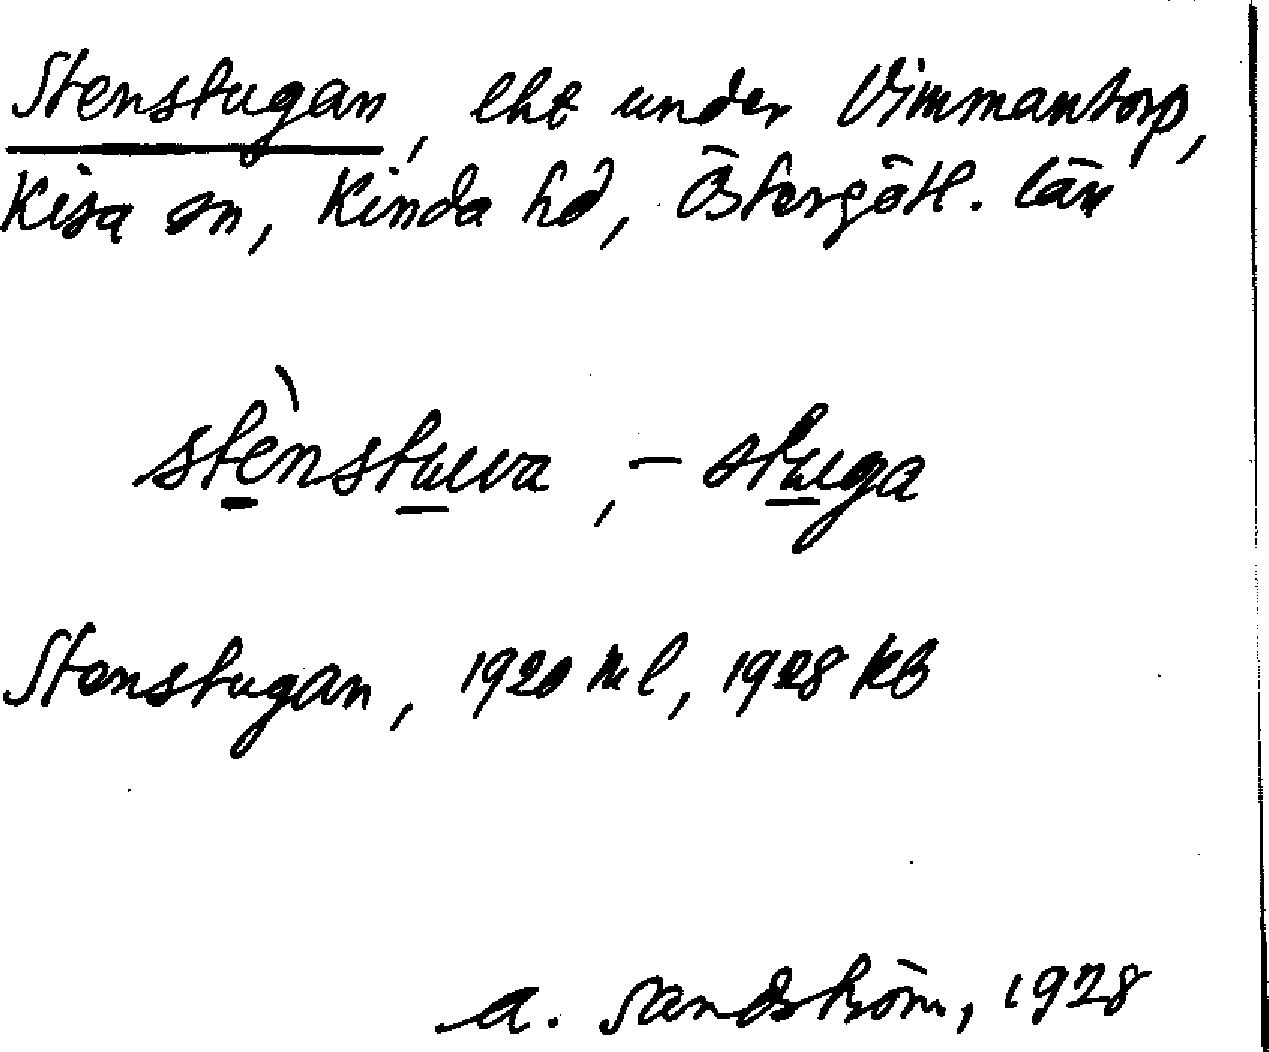 Stenstugan, lht under Vimmantorp,
Kisa sn, Kinda hd, Östergötl. län
stènstuva, -stuga
Stenstugan, 1920 ml, 1928 kb
A. Sandström, 1928